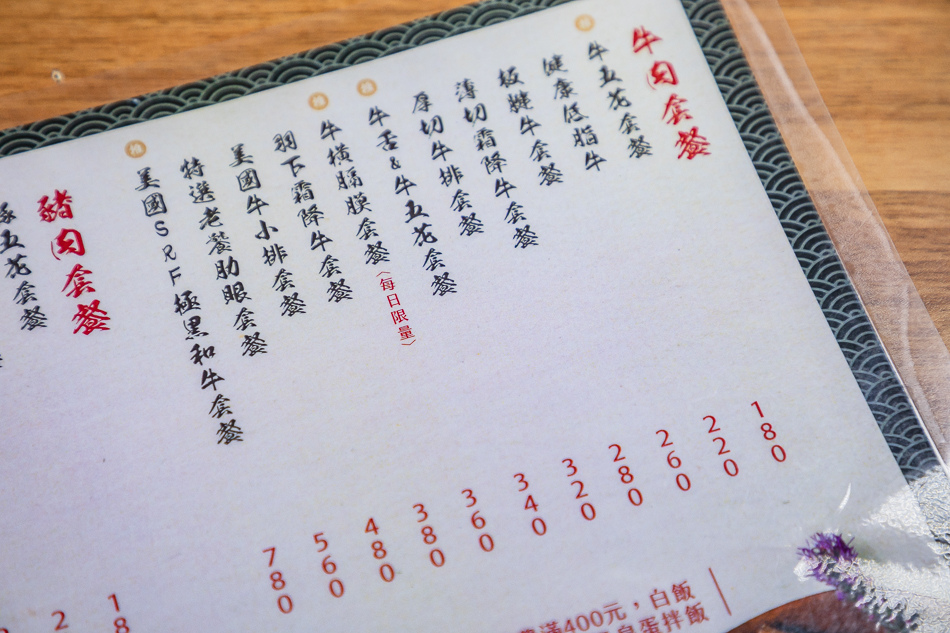 牛肉套餐
牛五花套餐 180
健康低脂牛 220
板腱牛套餐 260
薄切霜降牛套餐 280
厚切牛排套餐 320
牛舌&牛五花套餐 340
牛橫膈膜套餐〈每日限量〉 360
羽下霜降牛套餐 380
美國牛小排套餐 480
特選老饕肋眼套餐 560
美國SRF極黑和牛套餐 780
豬肉套餐
五花套餐 18
2
滿400元，白飯
蛋拌飯